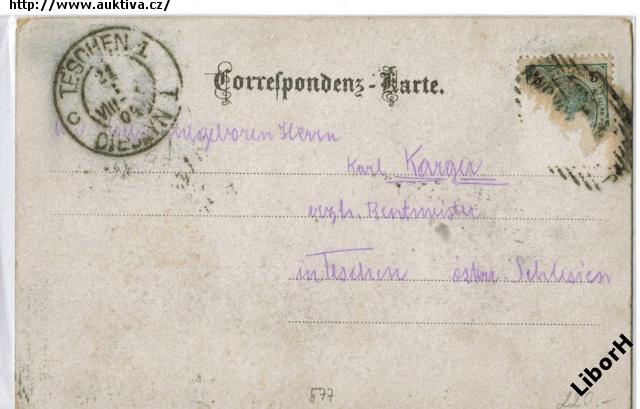 http://www.auktiva.cz/
TESCHEN 1
Correspondenz-Karte.
geboren Herrn
Karl Karger
erzh. Rentmeister
in Teschen österr Schlesien
577
220.-
LiborH